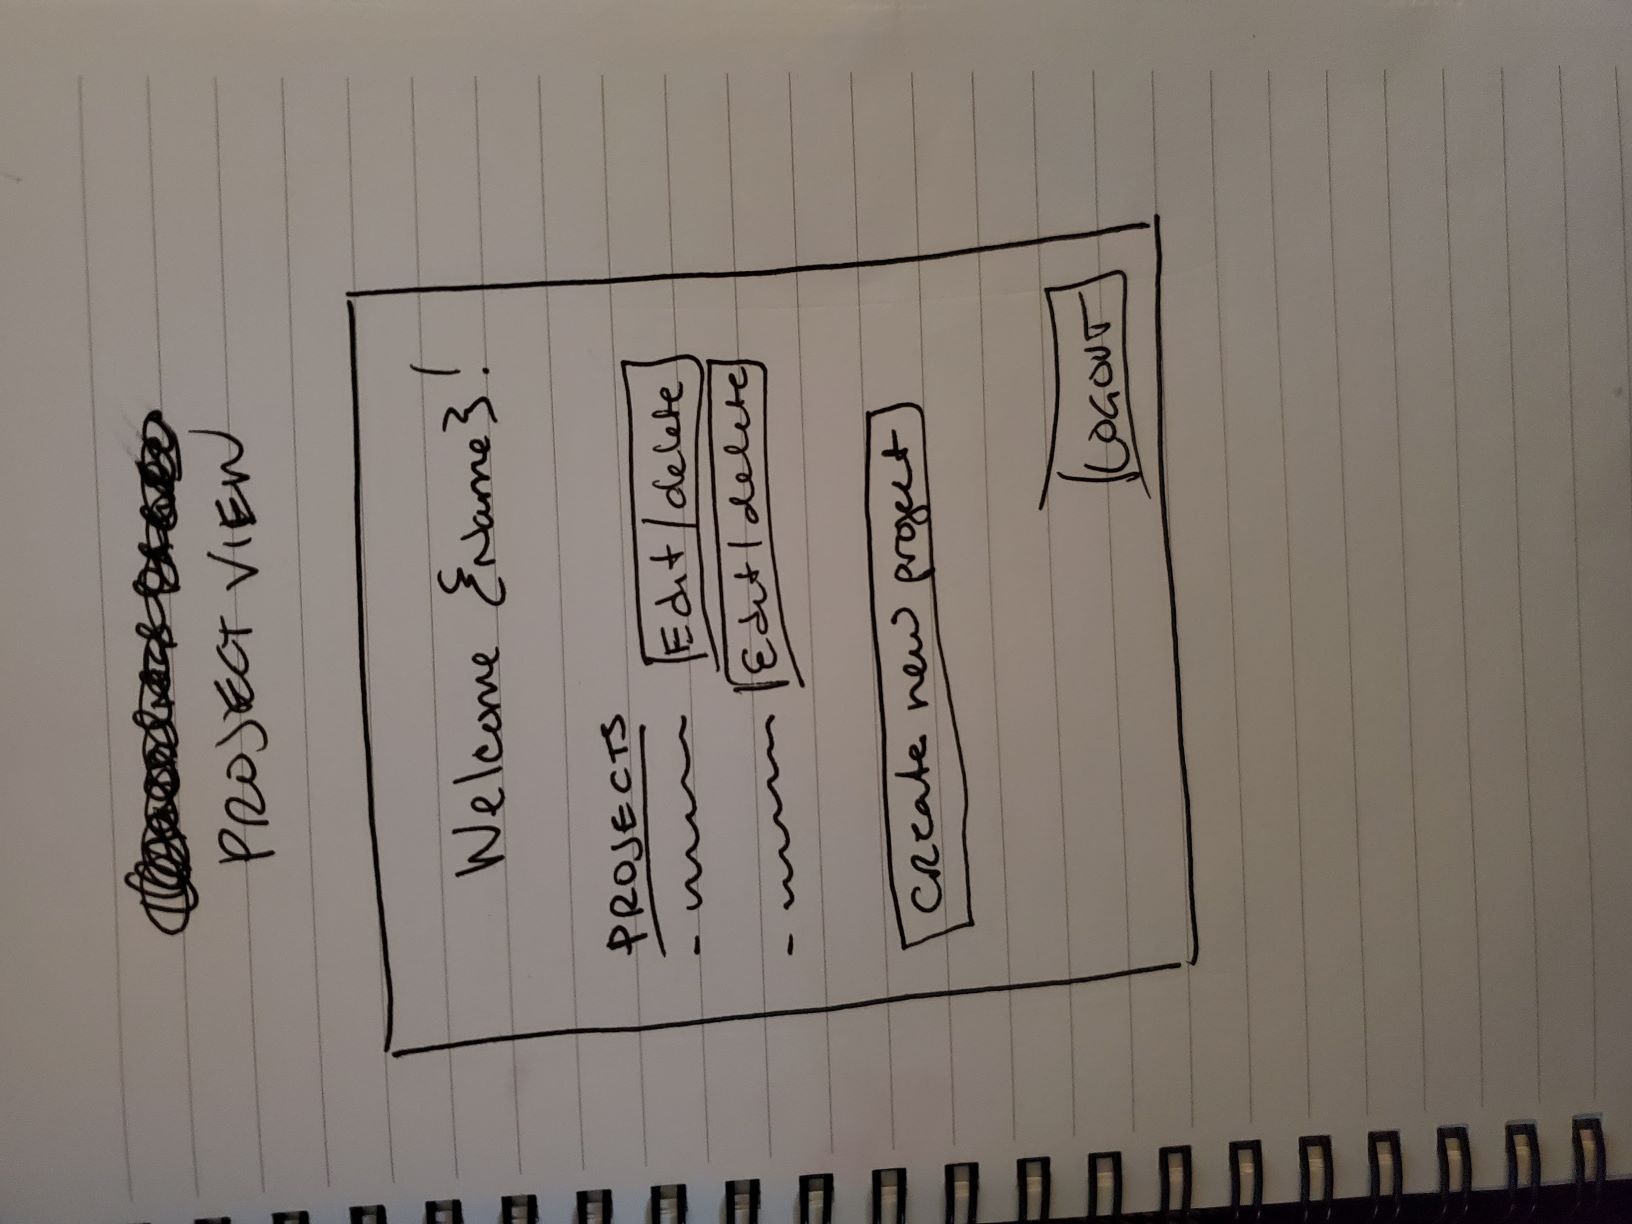 PROJECT VIEW
Welcome {Name}!
PROJECTS
- Edit/delete
- Edit/delete
Create new project
LOGOUT